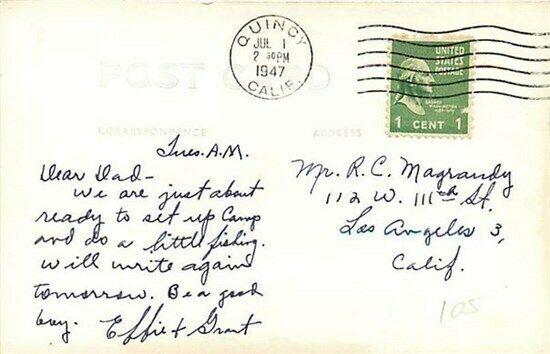 QUINCY
JUL 1
2 30PM
1947
CALIF.
UNITED
STATES
POSTAGE
GEORGE
WASHINGTON
1 CENT 1
POST CARD
CORRESPONDENCE
ADDRESS
Tues. A.M.
Dear Dad-
We are just about
ready to set up Camp
and do a little fishing.
Will write again
tomorrow. Be a good
boy. Effie & Grant
Mr. R. C. Magrandy
112 W. 111th St.
Los Angeles 3,
Calif.
105